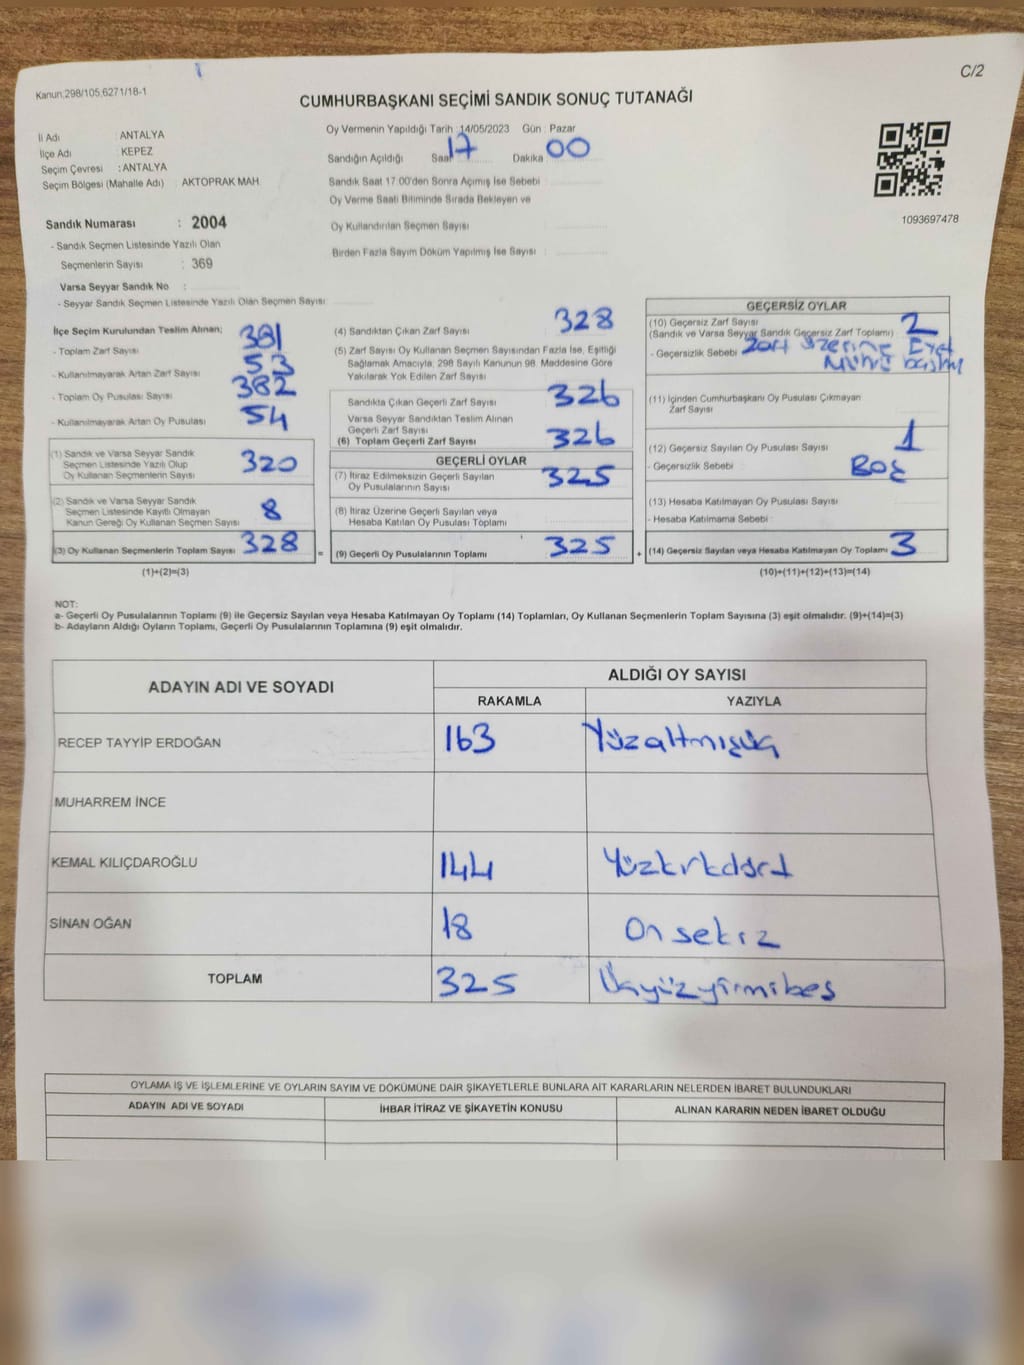 C/2
Kanun:298/105,6271/18-1
CUMHURBAŞKANI SEÇİMİ SANDIK SONUÇ TUTANAĞI
İl Adı : ANTALYA
İlçe Adı : KEPEZ
Seçim Çevresi : ANTALYA
Seçim Bölgesi (Mahalle Adı) : AKTOPRAK MAH.
Oy Vermenin Yapıldığı Tarih :14/05/2023 Gün : Pazar
Sandığın Açıldığı Saat 17 Dakika 00
Sandık Saat 17:00'den Sonra Açımış İse Sebebi :
Oy Verme Saati Bitiminde Sırada Bekleyen ve
Oy Kullandırılan Seçmen Sayısı
Birden Fazla Sayım Döküm Yapılmış İse Sayısı :
1093697478
Sandık Numarası : 2004
- Sandık Seçmen Listesinde Yazılı Olan
Seçmenlerin Sayısı : 369
Varsa Seyyar Sandık No :
- Seyyar Sandık Seçmen Listesinde Yazılı Olan Seçmen Sayısı:
İlçe Seçim Kurulundan Teslim Alınan;
- Toplam Zarf Sayısı 381
- Kullanılmayarak Artan Zarf Sayısı 53
- Toplam Oy Pusulası Sayısı 382
- Kullanılmayarak Artan Oy Pusulası 54
(1) Sandık ve Varsa Seyyar Sandık
Seçmen Listesinde Yazılı Olup
Oy Kullanan Seçmenlerin Sayısı 320
(2) Sandık ve Varsa Seyyar Sandık
Seçmen Listesinde Kayıtlı Olmayan
Kanun Gereği Oy Kullanan Seçmen Sayısı 8
(3) Oy Kullanan Seçmenlerin Toplam Sayısı 328
(1)+(2)=(3)
=
(4) Sandıktan Çıkan Zarf Sayısı 328
(5) Zarf Sayısı Oy Kullanan Seçmen Sayısından Fazla İse, Eşitliği
Sağlamak Amacıyla, 298 Sayılı Kanunun 98. Maddesine Göre
Yakılarak Yok Edilen Zarf Sayısı
Sandıkta Çıkan Geçerli Zarf Sayısı 326
Varsa Seyyar Sandıktan Teslim Alınan
Geçerli Zarf Sayısı
(6) Toplam Geçerli Zarf Sayısı 326
GEÇERLİ OYLAR
(7) İtiraz Edilmeksizin Geçerli Sayılan
Oy Pusulalarının Sayısı 325
(8) İtiraz Üzerine Geçerli Sayılan veya
Hesaba Katılan Oy Pusulası Toplamı
(9) Geçerli Oy Pusulalarının Toplamı 325
+
GEÇERSİZ OYLAR
(10) Geçersiz Zarf Sayısı 2
(Sandık ve Varsa Seyyar Sandık Geçersiz Zarf Toplamı)
- Geçersizlik Sebebi Zarf üzerine Evet
(11) İçinden Cumhurbaşkanı Oy Pusulası Çıkmayan
Zarf Sayısı
(12) Geçersiz Sayılan Oy Pusulası Sayısı 1
- Geçersizlik Sebebi Boş
(13) Hesaba Katılmayan Oy Pusulası Sayısı
- Hesaba Katılmama Sebebi :
(14) Geçersiz Sayılan veya Hesaba Katılmayan Oy Toplamı 3
(10)+(11)+(12)+(13)=(14)
NOT:
a- Geçerli Oy Pusulalarının Toplamı (9) ile Geçersiz Sayılan veya Hesaba Katılmayan Oy Toplamı (14) Toplamları, Oy Kullanan Seçmenlerin Toplam Sayısına (3) eşit olmalıdır. (9)+(14)=(3)
b- Adayların Aldığı Oyların Toplamı, Geçerli Oy Pusulalarının Toplamına (9) eşit olmalıdır.
ADAYIN ADI VE SOYADI
ALDIĞI OY SAYISI
RAKAMLA YAZIYLA
RECEP TAYYİP ERDOĞAN 163 Yüzaltmışüç
MUHARREM İNCE
KEMAL KILIÇDAROĞLU 144 Yüzkırkdört
SİNAN OĞAN 18 On sekiz
TOPLAM 325 Üçyüzyirmibeş
OYLAMA İŞ VE İŞLEMLERİNE VE OYLARIN SAYIM VE DÖKÜMÜNE DAİR ŞİKAYETLERLE BUNLARA AİT KARARLARIN NELERDEN İBARET BULUNDUKLARI
ADAYIN ADI VE SOYADI İHBAR İTİRAZ VE ŞİKAYETİN KONUSU ALINAN KARARIN NEDEN İBARET OLDUĞU